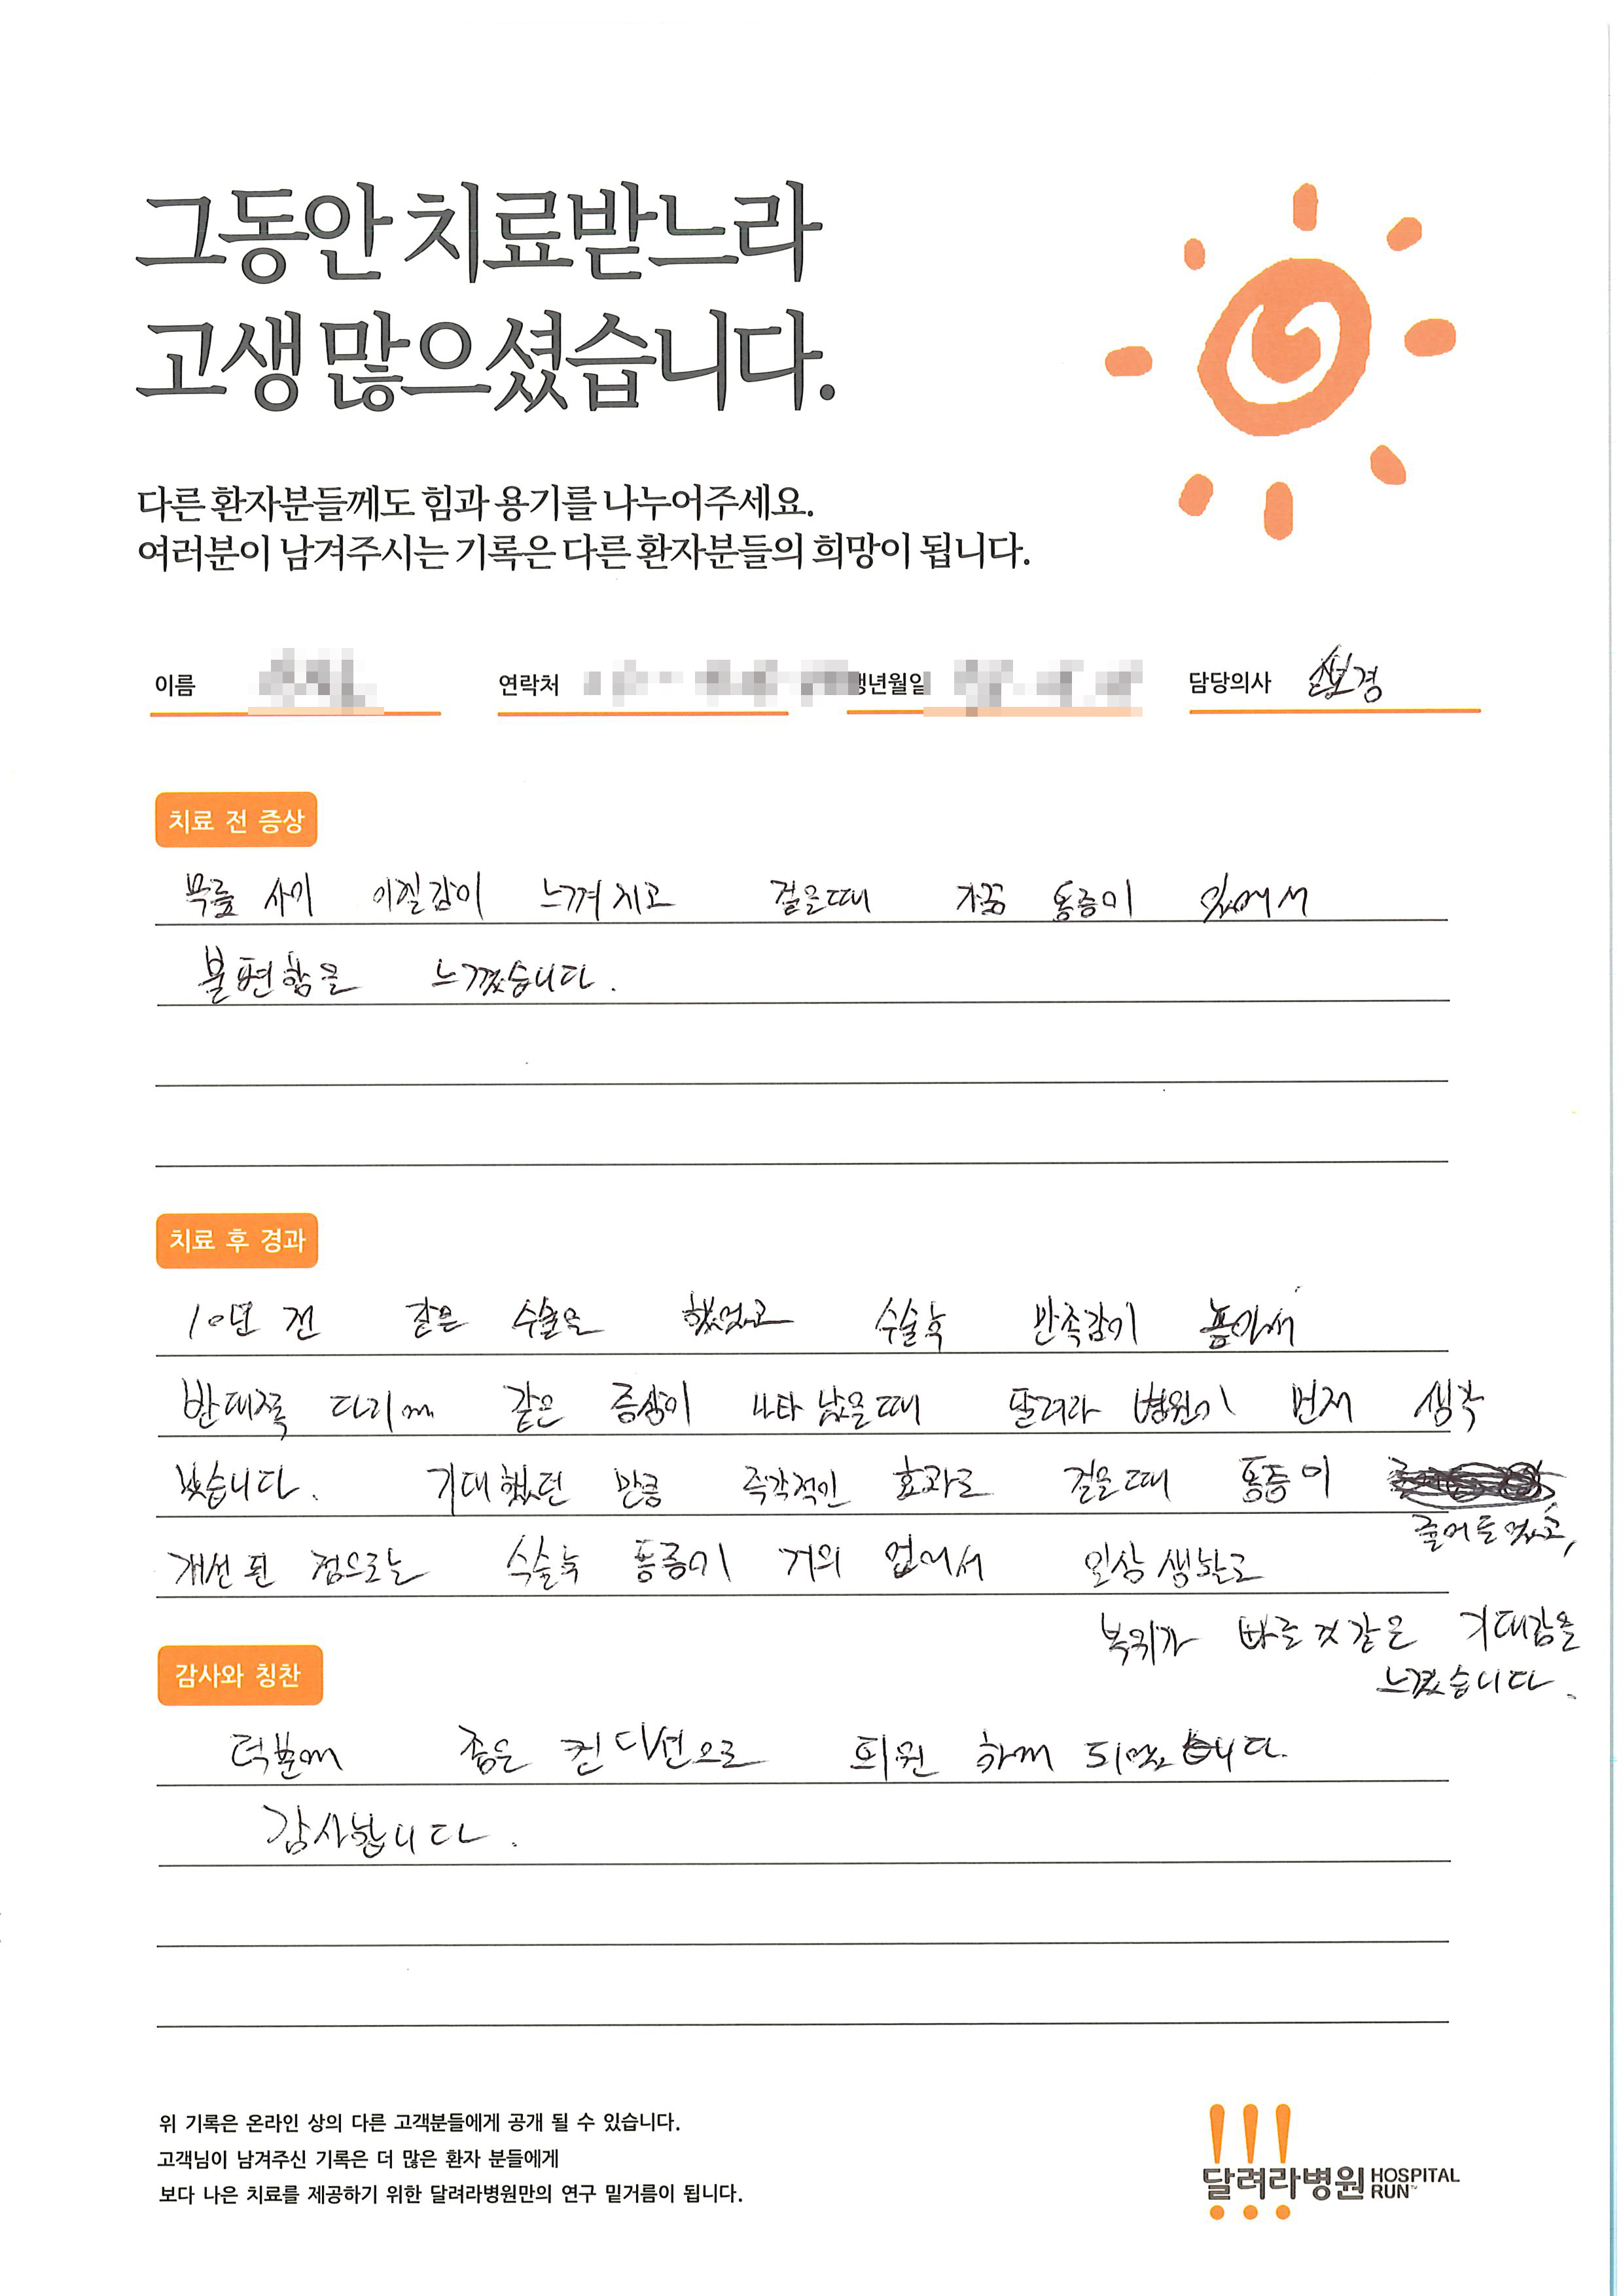 그동안 치료받느라
고생 많으셨습니다.
다른 환자분들께도 힘과 용기를 나누어주세요.
여러분이 남겨주시는 기록은 다른 환자분들의 희망이 됩니다.
이름 연락처 생년월일 담당의사
치료 전 증상
무릎 사이 이질감이 느껴지고 걸을때 가끔 통증이 있어서
불편함을 느꼈습니다.
치료 후 경과
10년 전 같은 수술을 했었고 수술후 만족감이 높아서
반대쪽 다리에 같은 증상이 나타났을때 달려라 병원이 먼저 생각
났습니다. 기대했던 만큼 즉각적인 효과로 걸을때 통증이
줄어들었고,
개선된 점으로는 수술후 통증이 거의 없어서 일상생활로
복귀가 빠를것같은 기대감을
느꼈습니다.
감사와 칭찬
덕분에 좋은 컨디션으로 퇴원 하게 되었습니다.
감사합니다.
위 기록은 온라인 상의 다른 고객분들에게 공개 될 수 있습니다.
고객님이 남겨주신 기록은 더 많은 환자 분들에게
보다 나은 치료를 제공하기 위한 달려라병원만의 연구 밑거름이 됩니다.
달려라병원 HOSPITAL
RUN